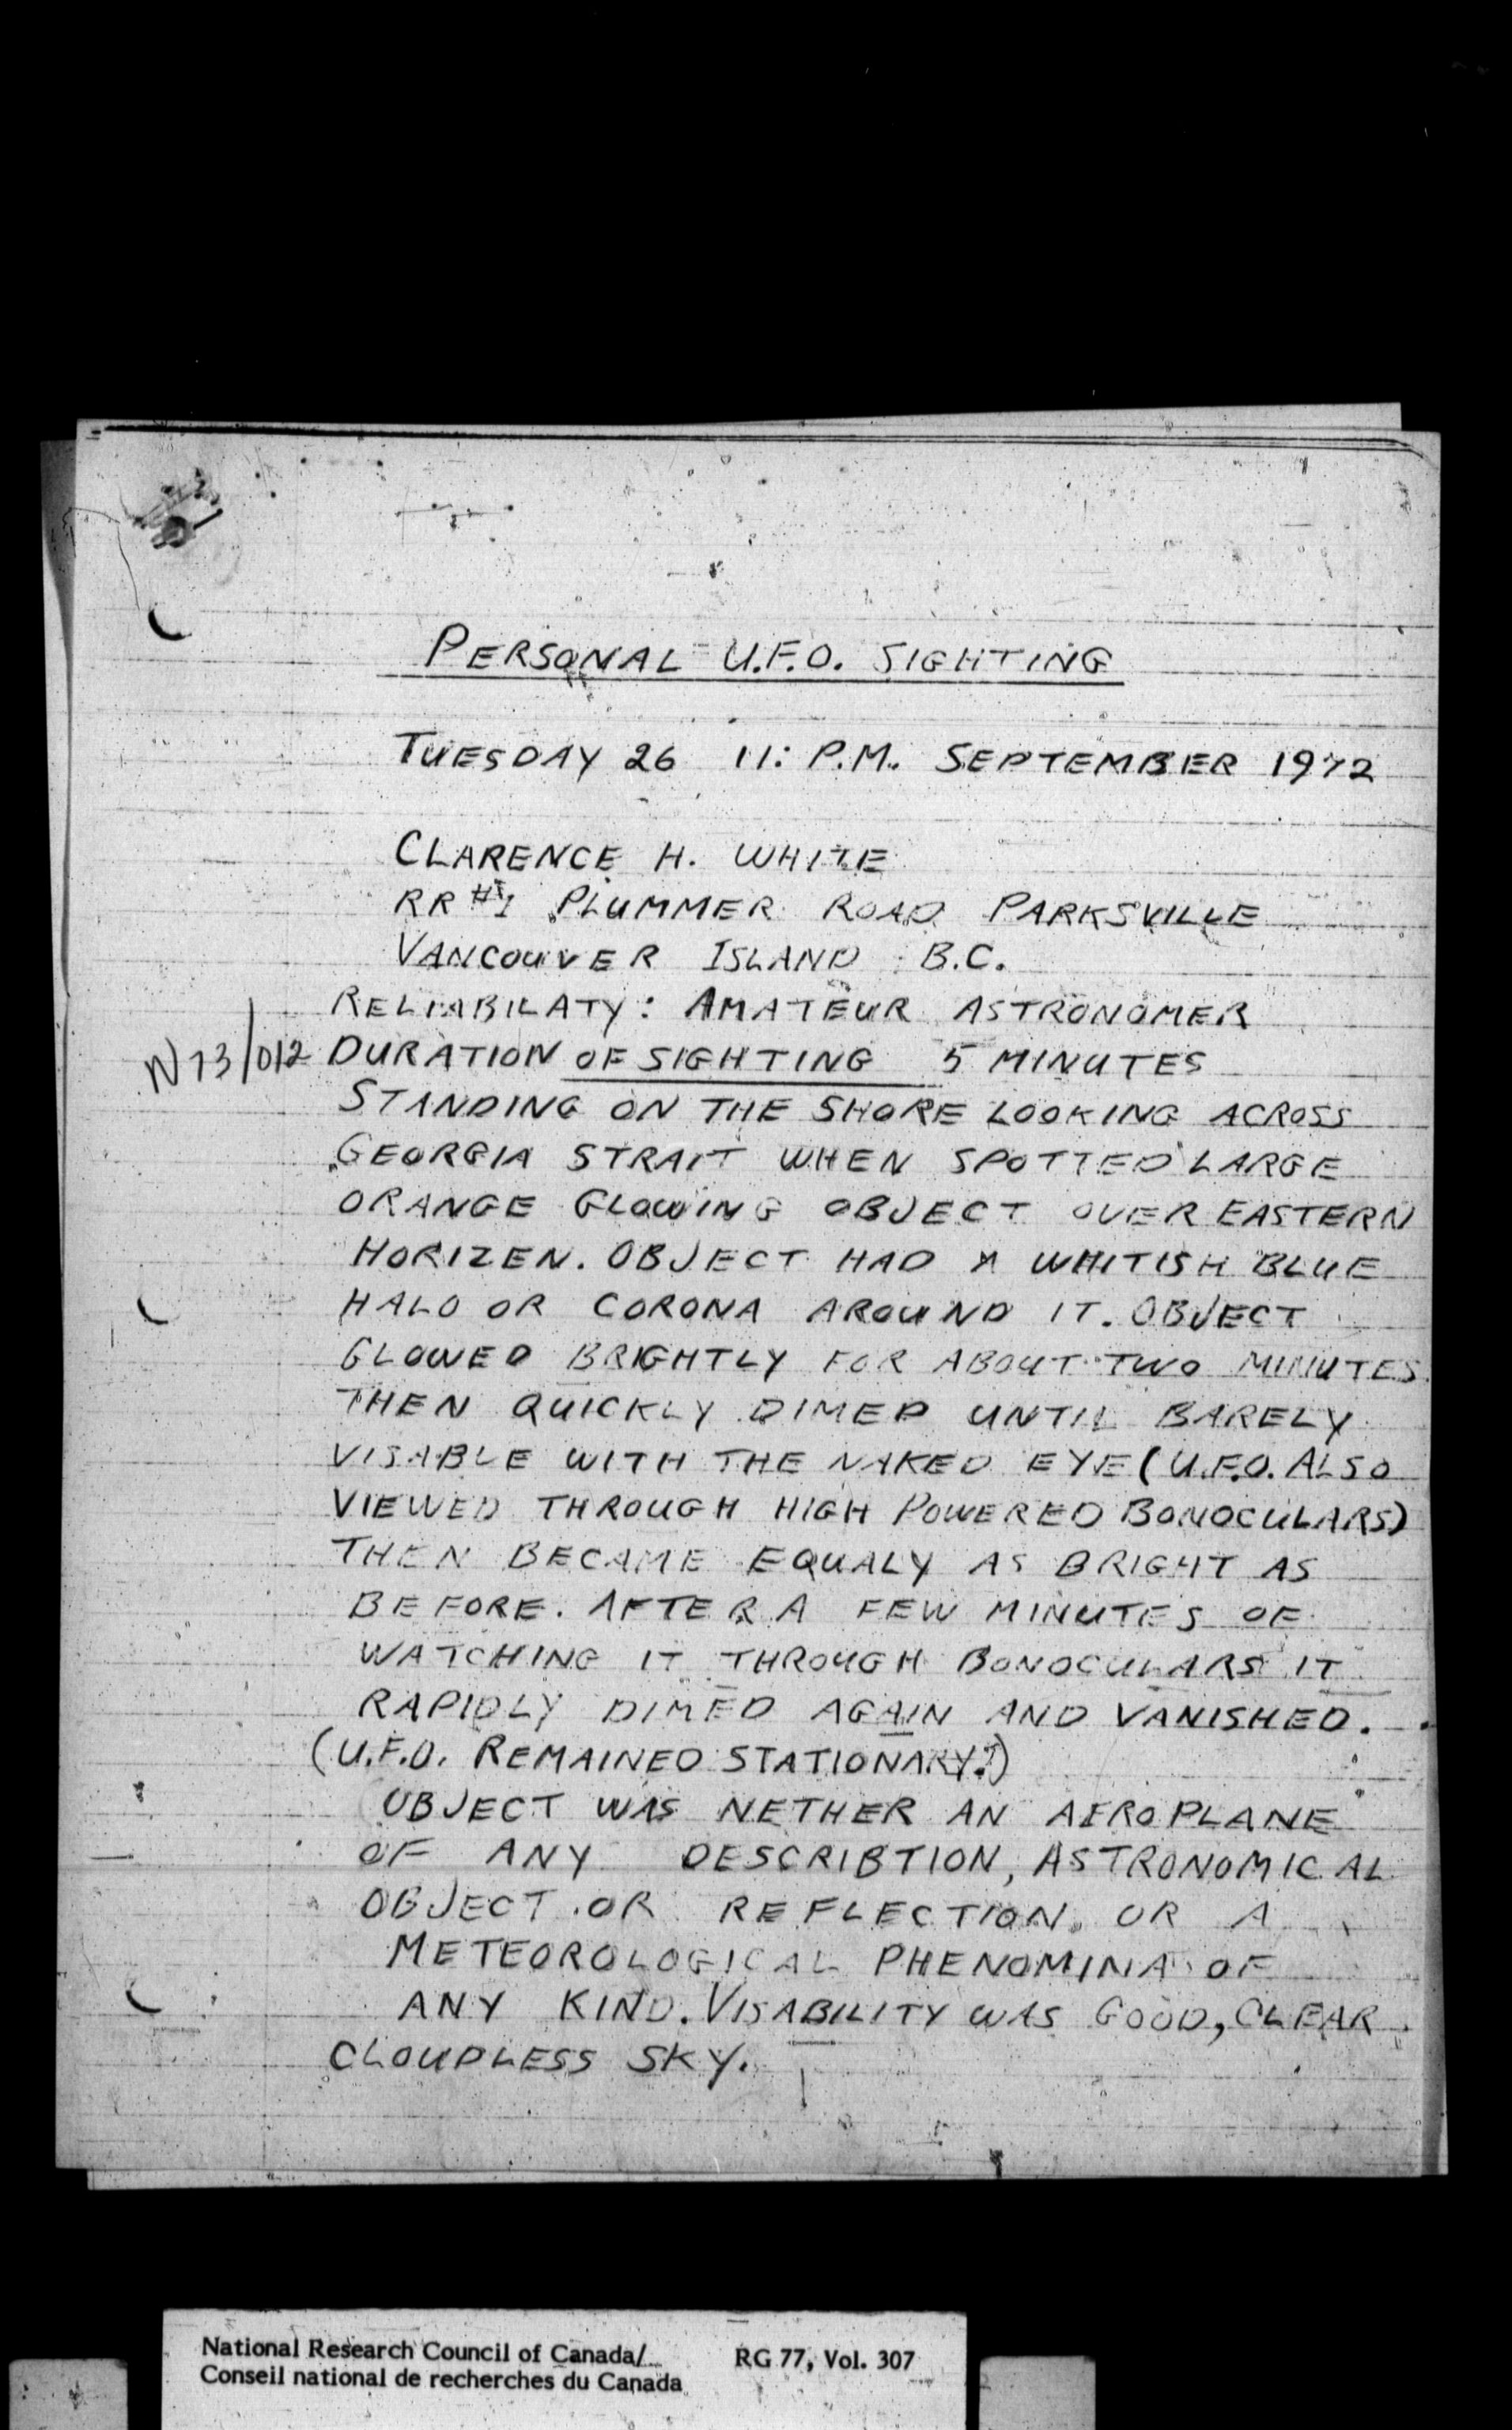 PERSONAL U.F.O. SIGHTING
TUESDAY 26 11: P.M. SEPTEMBER 1972
CLARENCE H. WHITE
RR #1 PLUMMER ROAD PARKSVILLE
VANCOUVER ISLAND B.C.
RELIABILATY: AMATEUR ASTRONOMER
N73/012 DURATION OF SIGHTING 5 MINUTES
STANDING ON THE SHORE LOOKING ACROSS
GEORGIA STRAIT WHEN SPOTTED LARGE
ORANGE GLOWING OBJECT OVER EASTERN
HORIZEN. OBJECT HAD A WHITISH BLUE
HALO OR CORONA AROUND IT. OBJECT
GLOWED BRIGHTLY FOR ABOUT TWO MINUTES
THEN QUICKLY DIMED UNTIL BARELY
VISABLE WITH THE NAKED EYE (U.F.O. ALSO
VIEWED THROUGH HIGH POWERED BONOCULARS)
THEN BECAME EQUALY AS BRIGHT AS
BEFORE. AFTER A FEW MINUTES OF
WATCHING IT THROUGH BONOCULARS IT
RAPIDLY DIMED AGAIN AND VANISHED.
(U.F.O. REMAINED STATIONARY!)
OBJECT WAS NETHER AN AEROPLANE
OF ANY DESCRIBTION, ASTRONOMICAL
OBJECT OR REFLECTION, OR A
METEOROLOGICAL PHENOMINA OF
ANY KIND. VISABILITY WAS GOOD, CLEAR
CLOUDLESS SKY.
National Research Council of Canada/ RG 77, Vol. 307
Conseil national de recherches du Canada